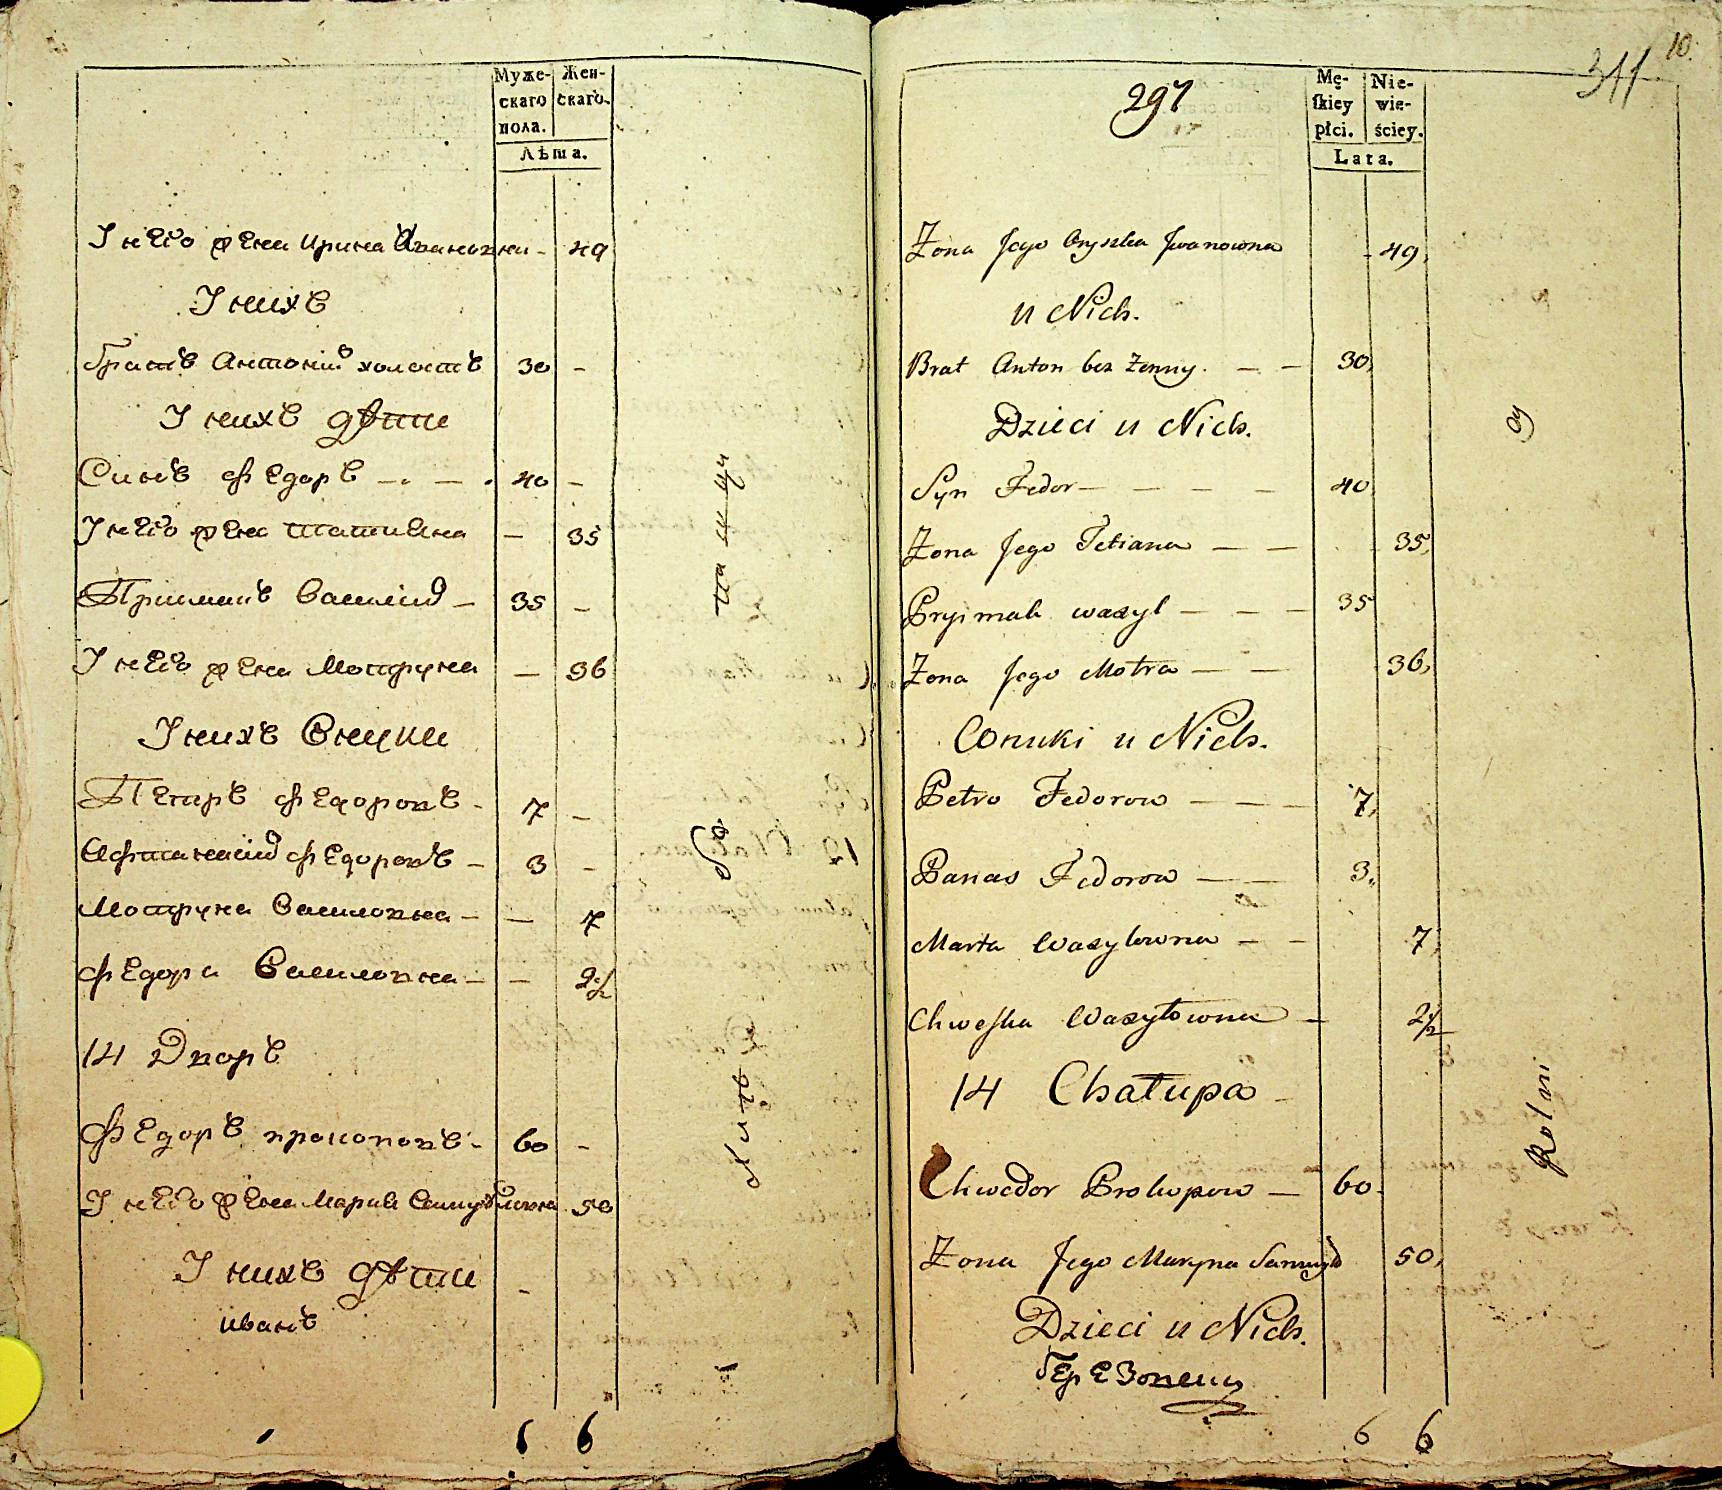 Муже-
скаго
пола.
Жен-
скаго.
Лѣта.
У него жена Ирина Ивановна - 49
У нихъ
братъ Антоній холостъ 30 -
У нихъ дѣти
Синъ Федоръ - - 40 -
У него жена Татиана - 35
Приимакъ Василій - 35 -
У него жена Мотруна - 36
У нихъ Внуки
Петръ Федоровъ - 7 -
Афтанасій Федоровъ - 3 -
Мотруна Василовна - - 7
Федора Василовна - - 2 1/2
14 Дворъ
Федоръ Прокоповъ - 60 -
У него жена Мария Самуйловна 50
У нихъ дѣти -
иванъ
6 6
10.
311
297
Mę-
skiey
płci.
Nie-
wie-
ściey.
Lata.
Zona Jego Oryszka Jwanowna - 49,
u Nich.
Brat Anton bez Zenny. - - 30,
Dzieci u Nich.
Syn Fedor - - - - 40,
Zona Jego Tetiana - - 35,
Pryimak wasyl - - - 35
Zona Jego Motra - - 36,
Wnuki u Nich.
Petro Fedorow - - - 7,
Panas Fedorow - - 3,
Marta Wasylowna - - 7,
Chweska Wasyłowna - 2 1/2
14 Chałupa -
Chwedor Prokopow - 60.
Zona Jego Maryna Samuyło 50,
Dzieci u Nich.
6 6